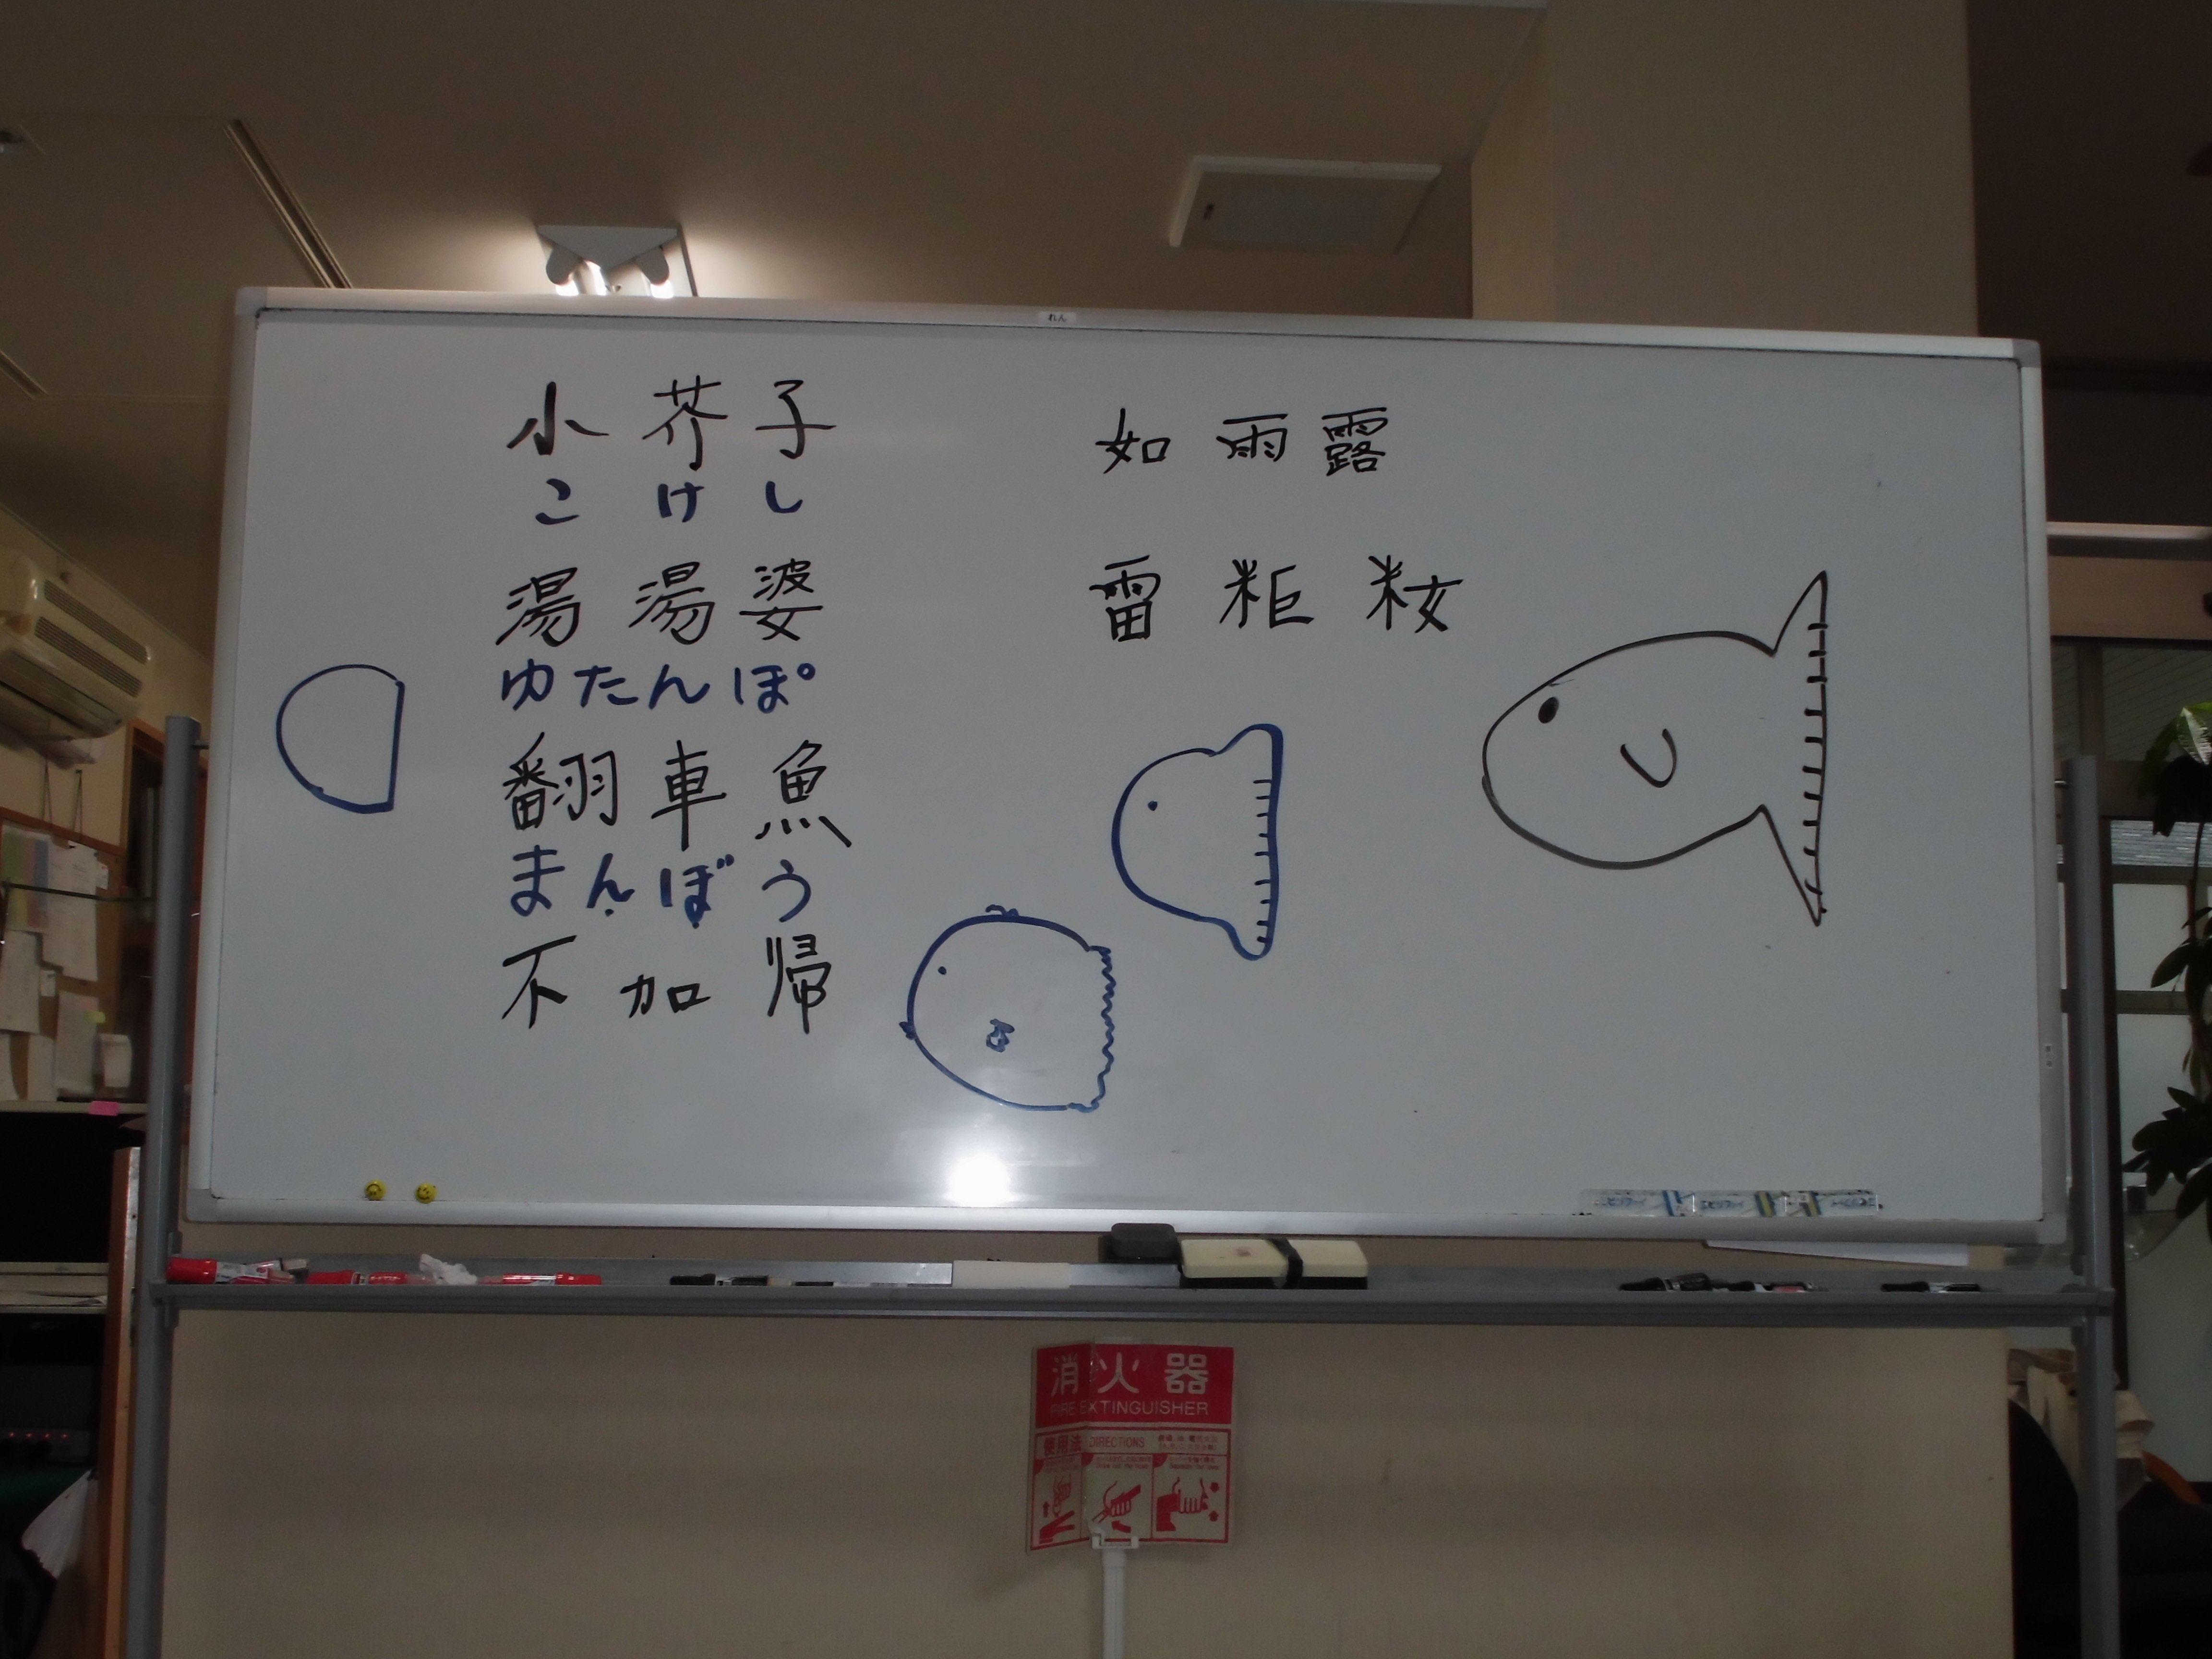 れん
小芥子
こけし
湯湯婆
ゆたんぽ
翻車魚
まんぼう
不加帰
如雨露
雷粔籹
消火器
FIRE EXTINGUISHER
使用法 DIRECTIONS